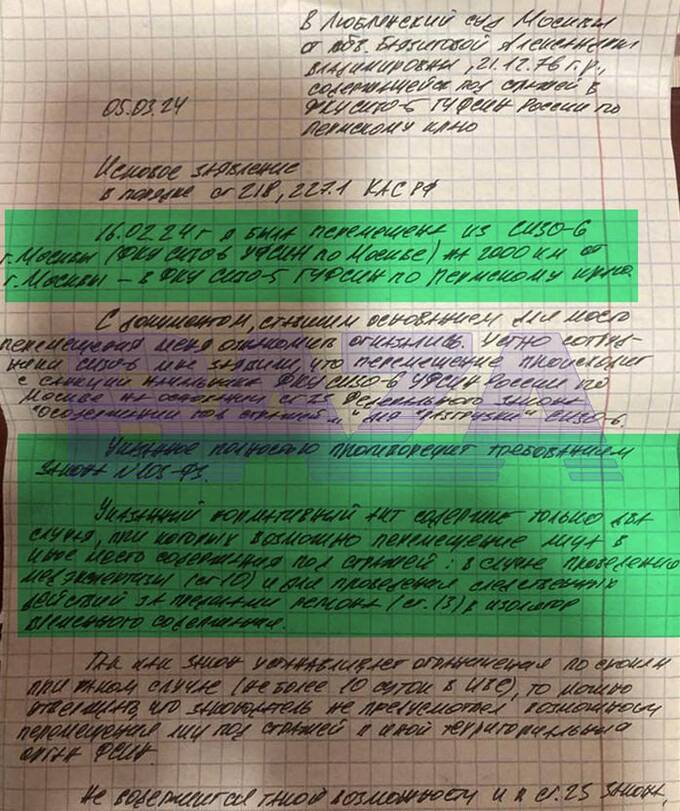 В Люблинский суд Москвы
от обв. Баязитовой Александры
Владимировны, 21.12.76 г.р.,
содержащейся под стражей в
ФКУ СИЗО-5 ГУФСИН России по
Пермскому краю
05.03.24
Исковое заявление
в порядке ст 218, 227.1 КАС РФ
16.02.24 г я была перемещена из СИЗО-6
г. Москвы (ФКУ СИЗО6 УФСИН по Москве) на 2000 км от
г. Москвы – в ФКУ СИЗО-5 ГУФСИН по Пермскому краю.
С документом, ставшим основанием для моего
перемещения меня ознакомить отказались. Устно сотруд-
ники СИЗО-6 мне заявили, что перемещение происходит
с санкции начальника ФКУ СИЗО-6 УФСИН России по
Москве на основании ст 25 Федерального закона
"О содержании под стражей..." для "разгрузки" СИЗО-6.
BAZA
Указанное полностью противоречит требованиям
закона N103-ФЗ.
Указанный нормативный акт содержит только два
случая, при которых возможно перемещение лиц в
иное место содержания под стражей: в случае проведения
медэкспертизы (ст 10) и для проведения следственных
действий за пределами региона (ст. 13) в изолятор
временного содержания.
Так как закон устанавливает ограничения по срокам
при таком случае (не более 10 суток в ИВС), то можно
утверждать, что законодатель не предусмотрел возможности
перемещения лиц под стражей в иной территориальный
орган ФСИН.
Не содержится такой возможности и в ст. 25 закона,